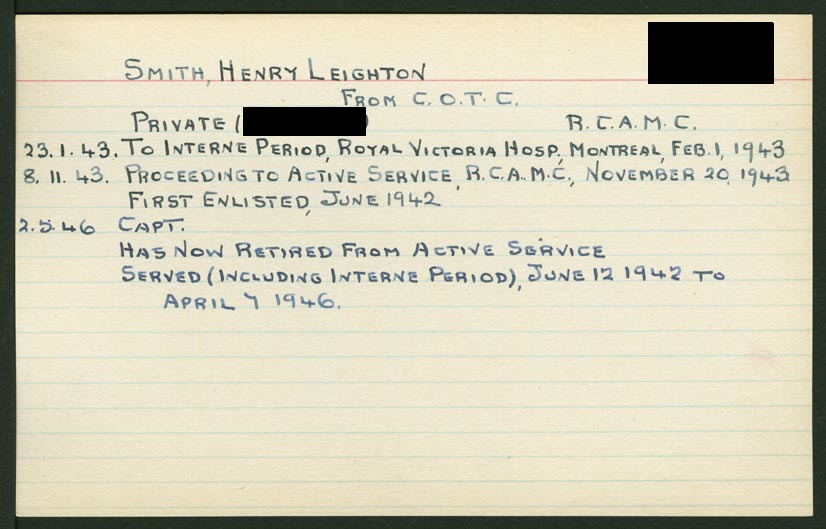 SMITH, HENRY LEIGHTON
FROM C.O.T.C.
PRIVATE ( ) R.C.A.M.C.
23.1.43. TO INTERNE PERIOD, ROYAL VICTORIA HOSP., MONTREAL, FEB.1, 1943
8.11.43. PROCEEDING TO ACTIVE SERVICE, R.C.A.M.C., NOVEMBER 20, 1943
FIRST ENLISTED, JUNE 1942
2.5.46 CAPT.
HAS NOW RETIRED FROM ACTIVE SERVICE
SERVED (INCLUDING INTERNE PERIOD), JUNE 12 1942 TO
APRIL 7 1946.